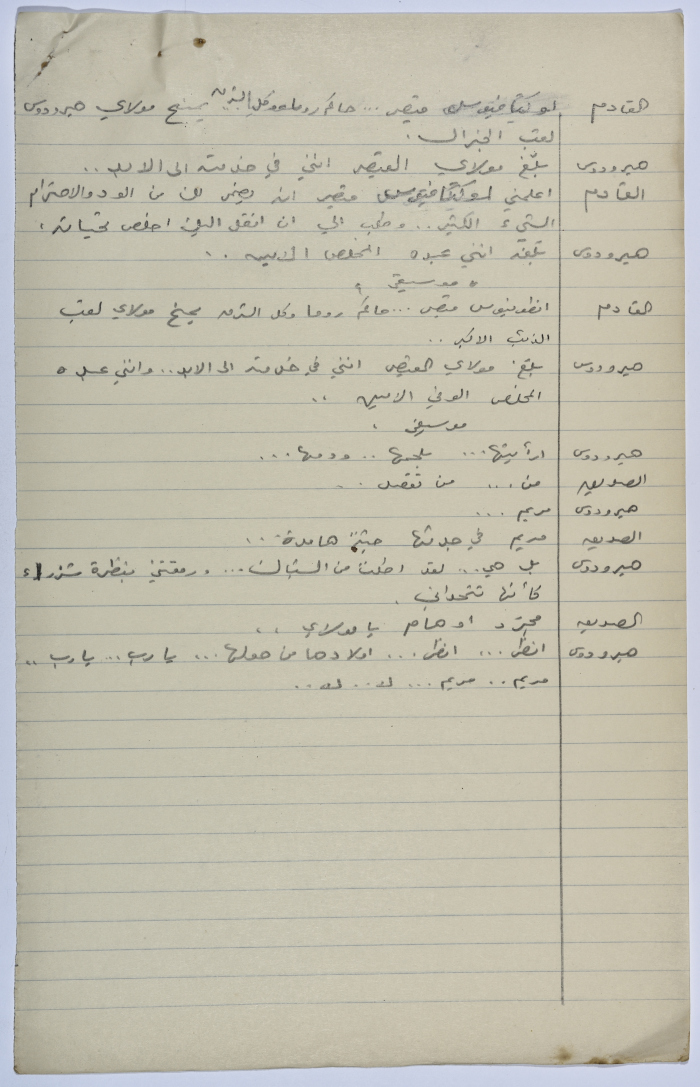 القادم اوكتافيوس قيصر ... حاكم روما وكل الشرق يمنح مولاي هيرودوس
لقب الجنرال .
هيرودوس بلّغ مولاي القيصر انني في خدمته الى الابد ..
القادم اعلمني اوكتافيوس قيصر انه يضمر لك من الود والاحترام
الشيء الكثير .. وطلب الي ان انقل اليك اخلص تحياته .
هيرودوس بلّغه انني عبده المخلص الامين ..
" موسيقى "
القادم انطونيوس قيصر ... حاكم روما وكل الشرق يمنح مولاي لقب
الاكبر ..
هيرودوس بلّغ مولاي القيصر انني في خدمته الى الابد .. وانني عبده
المخلص الوفي الامين ..
موسيقى .
هيرودوس ارأيتها ... بلحمها .. ودمها ...
الصديق من ... من تقصد ..
هيرودوس مريم ...
الصديق مريم في جدثها جثة هامدة ..
هيرودوس بل هي .. لقد اطلت من الشباك ... ورمقتني بنظرة شزراء
كأنها تتحداني .
الصديق مجرّد اوهام يا مولاي ..
هيرودوس انظر ... انظر ... اولادها من حولها ... يا رب .. يا رب ..
مريم .. مريم ... لا .. لا ..